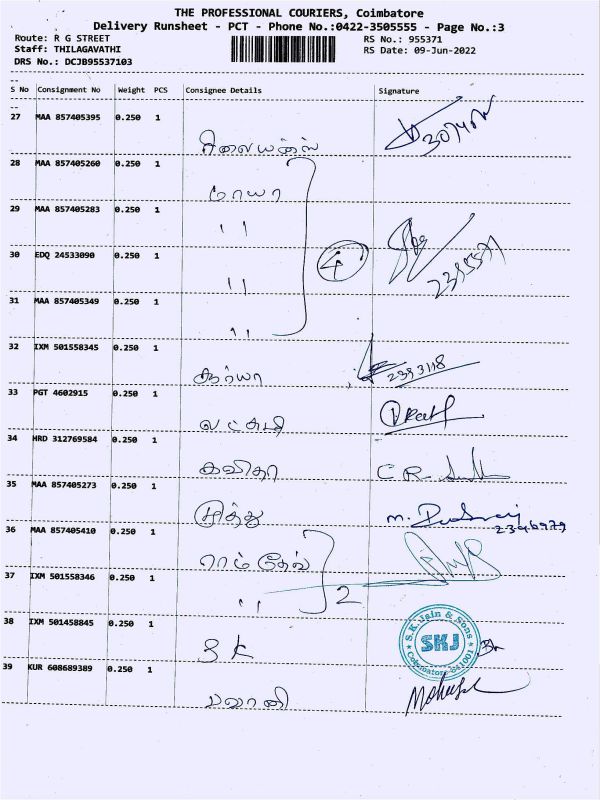 THE PROFESSIONAL COURIERS, Coimbatore
Delivery Runsheet - PCT - Phone No.:0422-3505555 - Page No.:3
Route: R G STREET
RS No.: 955371
Staff: THILAGAVATHI
RS Date: 09-Jun-2022
DRS No.: DCJB95537103
S No Consignment No Weight PCS Consignee Details Signature
27 MAA 857405395 0.250 1
28 MAA 857405260 0.250 1
மாயா
29 MAA 857405283 0.250 1
"
30 EDQ 24533090 0.250 1
" 4
31 MAA 857405349 0.250 1
"
32 IXM 501558345 0.250 1
சூர்யா 2393118
33 PGT 4602915 0.250 1
லட்சுமி
34 HRD 312769584 0.250 1
கவிதா C R
35 MAA 857405273 0.250 1
முத்து M.
2346979
36 MAA 857405410 0.250 1
ராம்தேவ்
37 IXM 501558346 0.250 1
" 2
38 IXM 501458845 0.250 1
S K
S.K. Jain & Sons
SKJ
Coimbatore 641001
39 KUR 608689389 0.250 1
பவானி